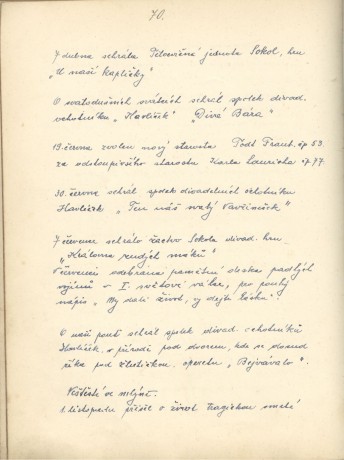 70.
7 dubna sehrála Tělocvičná jednota Sokol, hru
„U naší kapličky"
O svatodušních svátcích sehrál spolek divad.
ochotníků „Havlíček" „Divá Bára"
19. června zvolen nový starosta Podt Frant. čp 53.
za odstoupivšího starostu Karla čp 77.
30. června sehrál spolek divadelních ochotníků
Havlíček „Ten náš svatý Vavřineček"
7 července sehrálo žactvo Sokola divad. hru
„Královna rudých máků"
V červenci odebrána pamětní deska padlých
vojínů v I. světové válce, pro pouhý
nápis „My dali život, vy dejte lásku".
O naší pouti sehrál spolek divad. ochotníků
Havlíček, v přírodě pod dvorem, kde se
říká pod operetu „Bojvávalo".
Neštěstí ve mlýně.
1. listopadu přišel o život tragickou smrtí